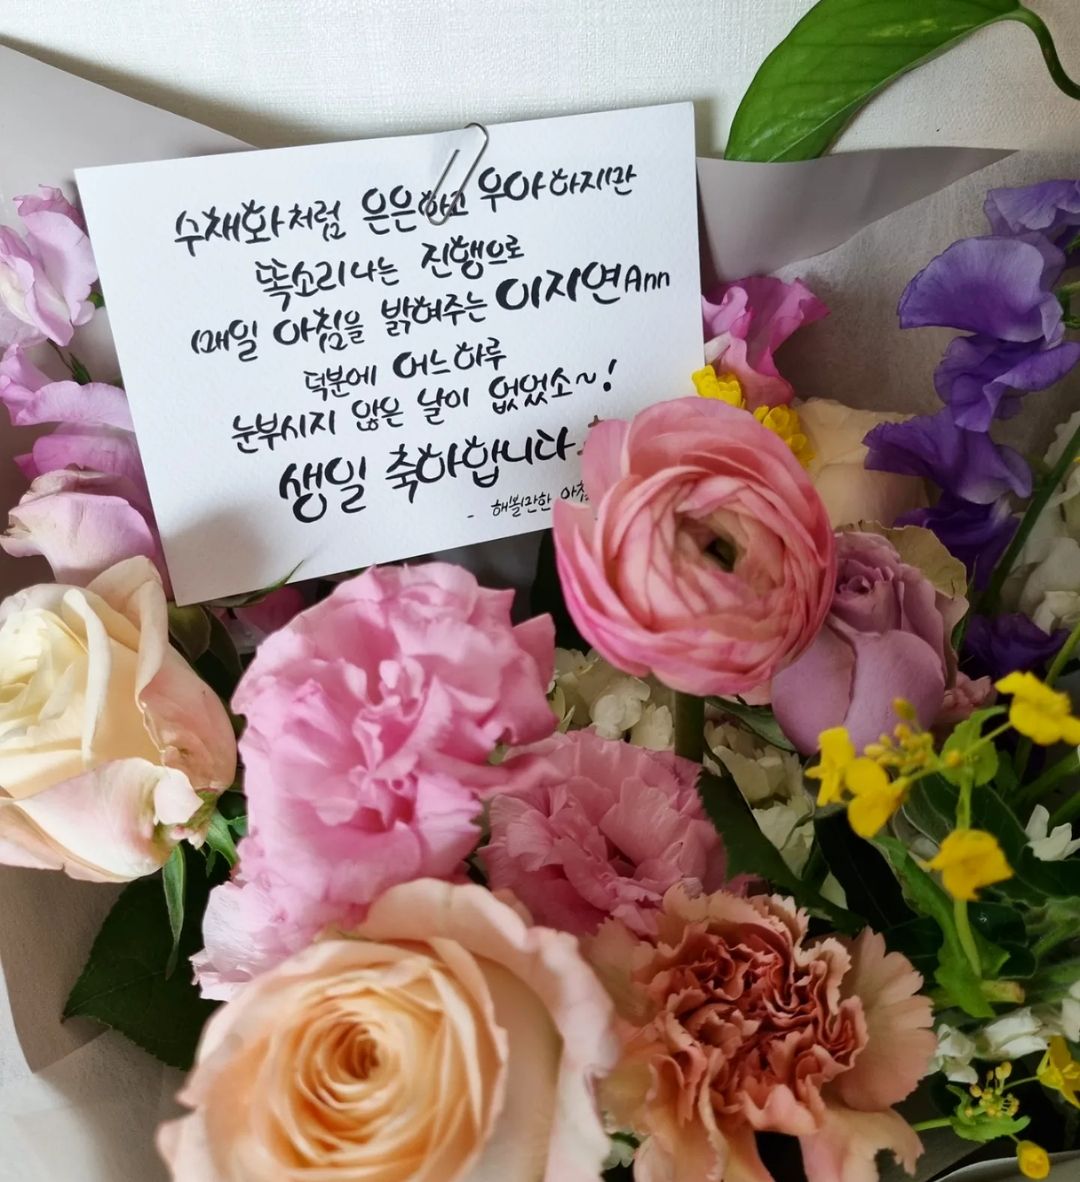 수채화처럼 은은하고 우아하지만
똑소리나는 진행으로
매일 아침을 밝혀주는 이지연Ann
덕분에 어느하루
눈부시지 않은 날이 없었소~!
생일 축하합니다
- 해볼만한